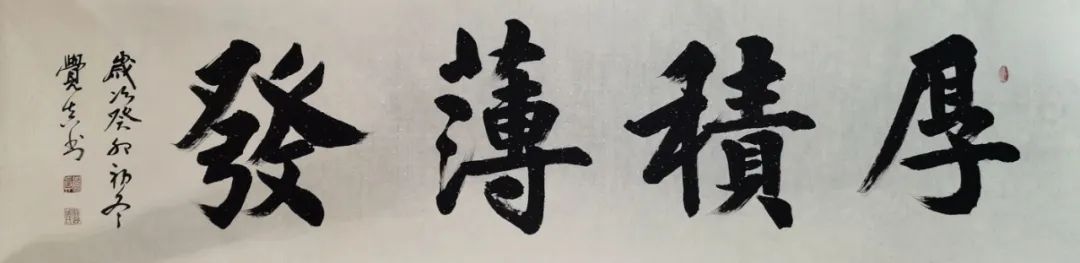 厚積薄發
歲次癸卯初冬
覺真書